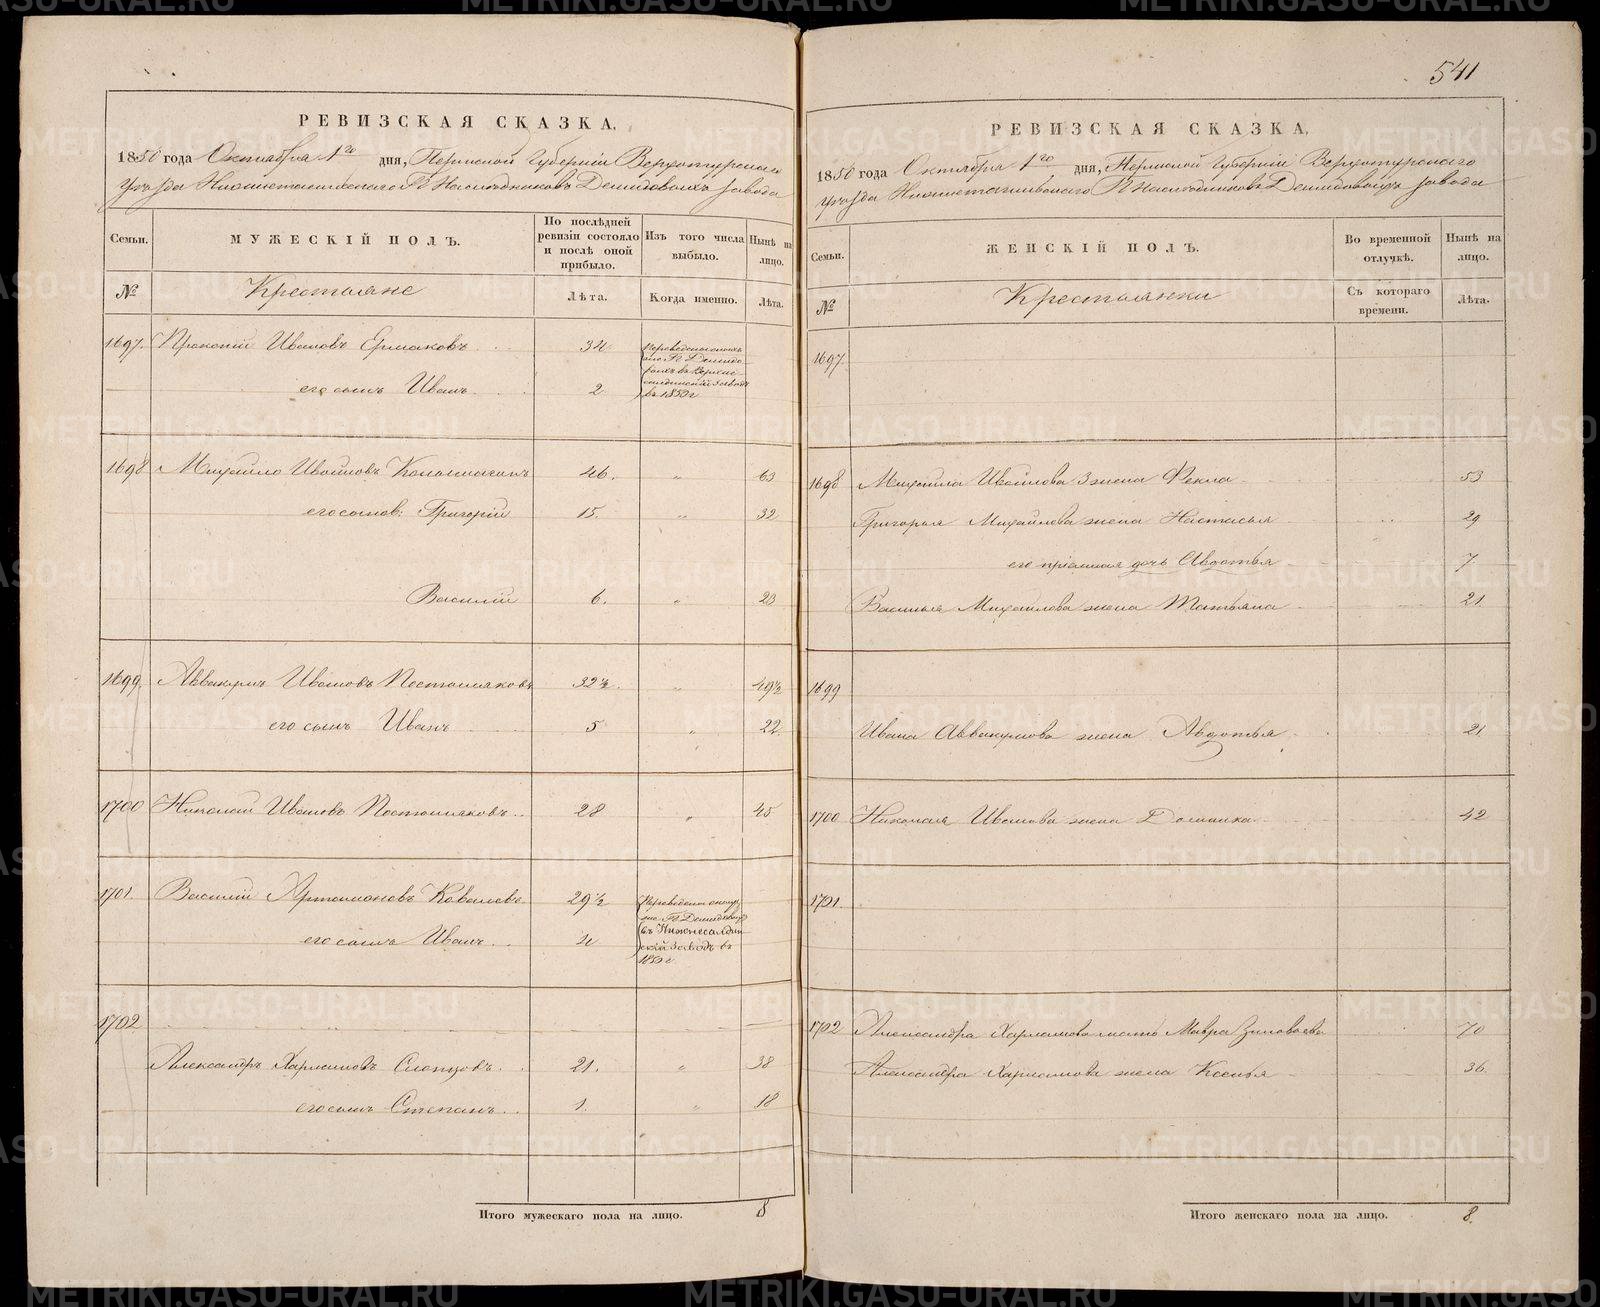 541
РЕВИЗСКАЯ СКАЗКА.
1850 года Октября 1го дня, Пермской Губерніи Верхотурскаго
уѣзда Нижнетагильскаго Гг Наслѣдниковъ Демидовыхъ завода
Семьи. МУЖЕСКІЙ ПОЛЪ. По послѣдней ревизіи состояло и послѣ оной прибыло. Изъ того числа выбыло. Нынѣ на лицо.
№ Крестьяне Лѣта. Когда именно. Лѣта.
1697. Прокопій Ивановъ Ермаковъ 34
его сынъ Иванъ 2
въ 1835 г
1698 Михайло Ивановъ 46. " 63
его сынов: Григорій 15. " 32
Василій 6. " 23
1699. Аввакумъ Ивановъ Постыляковъ 32½. " 49½
его сынъ Иванъ 5 " 22
1700 Николай Ивановъ Постыляковъ 28 " 45
1701. Василій Артамоновъ Ковалевъ 29½
его сынъ Иванъ
въ Нижнесалдин
скій заводъ въ
1702
Александръ Харламовъ Слопцовъ 21. " 38
его сынъ Степанъ 1. " 18
Итого мужескаго пола на лицо. 8
РЕВИЗСКАЯ СКАЗКА.
1850 года Октября 1го дня, Пермской Губерніи Верхотурскаго
уѣзда Нижнетагильскаго Гг Наслѣдниковъ Демидовыхъ завода
Семьи. ЖЕНСКІЙ ПОЛЪ. Во временной отлучкѣ. Нынѣ на лицо.
№ Крестьянки Съ котораго времени. Лѣта.
1697.
1698 Михайла Иванова 3 жена Фекла 53
Григорья Михайлова жена Настасья 29
его пріемная дочь Авдотья 7
Василья Михайлова жена Татьяна 21
1699
Ивана Аввакумова жена Авдотья 21
1700 Николая Иванова жена Домника 42
1701.
1702 Александра Харламова мать Мавра Зиновьева 70
Александра Харламова жена Ксенья 36
Итого женскаго пола на лицо. 8.
METRIKI.GASO-URAL.RU